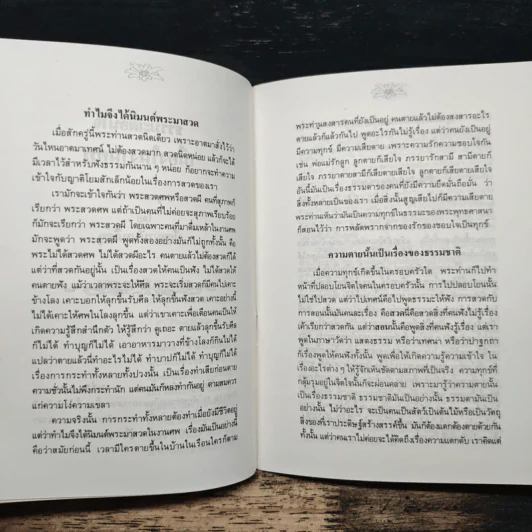 ทำไมจึงได้นิมนต์พระมาสวด
เมื่อสักครู่นี้พระท่านสวดนิดเดียว เพราะอาตมาสั่งไว้ว่า
วันไหนอาตมาเทศน์ ไม่ต้องสวดมาก สวดนิดหน่อย แล้วก็จะได้
มีเวลาไว้สำหรับฟังธรรมกันนาน ๆ หน่อย ก็อยากจะทำความ
เข้าใจกับญาติโยมสักเล็กน้อยในเรื่องการสวดของเรา
เรามักจะเข้าใจกันว่า พระสวดศพหรือสวดผี คนที่สุภาพก็
เรียกว่า พระสวดศพ แต่ถ้าเป็นคนที่ไม่ค่อยจะสุภาพเรียบร้อย
ก็มักจะเรียกว่า พระสวดผี โดยเฉพาะคนที่มาดื่มเหล้าในงานศพ
มักจะพูดว่า พระสวดผี พูดทั้งสองอย่างมันก็ไม่ถูกทั้งนั้น คือ
พระไม่ได้สวดศพ ไม่ได้สวดผีอะไร คนตายแล้วไม่ต้องสวดก็ได้
แต่ว่าที่สวดกันอยู่นั้น เป็นเรื่องสวดให้คนเป็นฟัง ไม่ได้สวดให้
คนตายฟัง แม้ว่าเวลาพระจะให้ศีล พระจะเริ่มสวดก็มีคนไปเคาะ
ข้างโลง เคาะบอกให้ลุกขึ้นรับศีล ให้ลุกขึ้นฟังสวด เคาะอย่างนี้
ไม่ได้เคาะให้ศพในโลงลุกขึ้น แต่ว่าเขาเคาะเพื่อเตือนคนเป็นให้
เกิดความรู้สึกสำนึกตัว ให้รู้สึกว่า ดูเถอะ ตายแล้วลุกขึ้นรับศีล
ก็ไม่ได้ ทำบุญก็ไม่ได้ เอาอาหารมาวางที่ข้างโลงก็กินไม่ได้
แปลว่าตายแล้วนี่ทำอะไรไม่ได้ ทำบาปก็ไม่ได้ ทำบุญก็ไม่ได้
เรื่องการกระทำทั้งหลายทั้งปวงนั้น เป็นเรื่องทำเสียก่อนตาย
ความชั่วนั้นไม่พึงกระทำนัก แต่คนมันก็หลงทำกันอยู่ ตามสมควร
แก่ความโง่ความเขลา
ความจริงนั้น การกระทำทั้งหลายต้องทำเมื่อยังมีชีวิตอยู่
แต่ว่าทำไมจึงได้นิมนต์พระมาสวดในงานศพ เรื่องมันเป็นอย่างนี้
คือว่าสมัยก่อนนี้ เวลามีใครตายขึ้นในบ้านในเรือนใครก็ตาม
พระท่านสงสารคนที่ยังเป็นอยู่ คนตายแล้วไม่ต้องสงสารอะไร
ตายแล้วก็แล้วกันไป พูดอะไรกันไม่รู้เรื่อง แต่ว่าคนยังเป็นอยู่
มีความทุกข์ มีความเสียดาย เพราะความรักความชอบใจกัน
เช่น พ่อแม่รักลูก ลูกตายก็เสียใจ ภรรยารักสามี สามีตายก็
เสียใจ ภรรยาตายสามีก็เสียใจ ลูกตายก็เสียใจ ลูกตายก็เสียดาย
อันนี้มันเป็นเรื่องธรรมดาของคนที่ยังมีความยึดมั่นถือมั่น ว่า
สิ่งทั้งหลายเป็นของเรา เมื่อสิ่งนั้นสูญเสียไปก็มีความเสียดาย
พระท่านเห็นว่ามันเป็นความทุกข์ในธรรมะของพระพุทธศาสนา
ก็สอนไว้ว่า การพลัดพรากจากของรักของชอบใจเป็นทุกข์.
ความตายนั้นเป็นเรื่องของธรรมชาติ
เมื่อความทุกข์เกิดขึ้นในครอบครัวใด พระท่านก็ไปทำ
หน้าที่ปลอบโยนจิตใจคนในครอบครัวนั้น การไปปลอบโยนนั้น
ไม่ใช่ไปสวด แต่ว่าไปเทศน์คือไปพูดธรรมะให้ฟัง การสวดกับ
การสอนนั้นมันคนละเรื่อง คือสวดนี้คือสวดสิ่งที่คนฟังไม่รู้เรื่อง
เค้าเรียกว่าสวดกัน แต่ว่าสอนนั้นคือพูดสิ่งที่คนฟังรู้เรื่อง แต่เรา
พูดในภาษาวัดว่า แสดงธรรม หรือว่าเทศนา หรือว่าปาฐกถา
ก็เรื่องพูดให้คนฟังทั้งนั้น พูดเพื่อให้เกิดความรู้ความเข้าใจ ใน
เรื่องอะไรต่าง ๆ ให้รู้จักเห็นชัดตามสภาพที่เป็นจริง ความทุกข์ที่
กลุ้มรุมอยู่ในจิตใจนั้นก็จะผ่อนคลาย เพราะมารู้ว่าความตายนั้น
เป็นเรื่องธรรมชาติ ธรรมชาติมันเป็นอย่างนั้น ธรรมดามันเป็น
อย่างนั้น ไม่ว่าอะไร จะเป็นคนเป็นสัตว์เป็นต้นไม้หรือเป็นวัตถุ
สิ่งของที่เราประดิษฐ์สร้างสรรค์ขึ้น มันก็ต้องแตกต้องตายด้วยกัน
ทั้งนั้น แต่ว่าคนเราไม่ค่อยจะได้คิดถึงเรื่องความแตกดับ เราคิดแต่